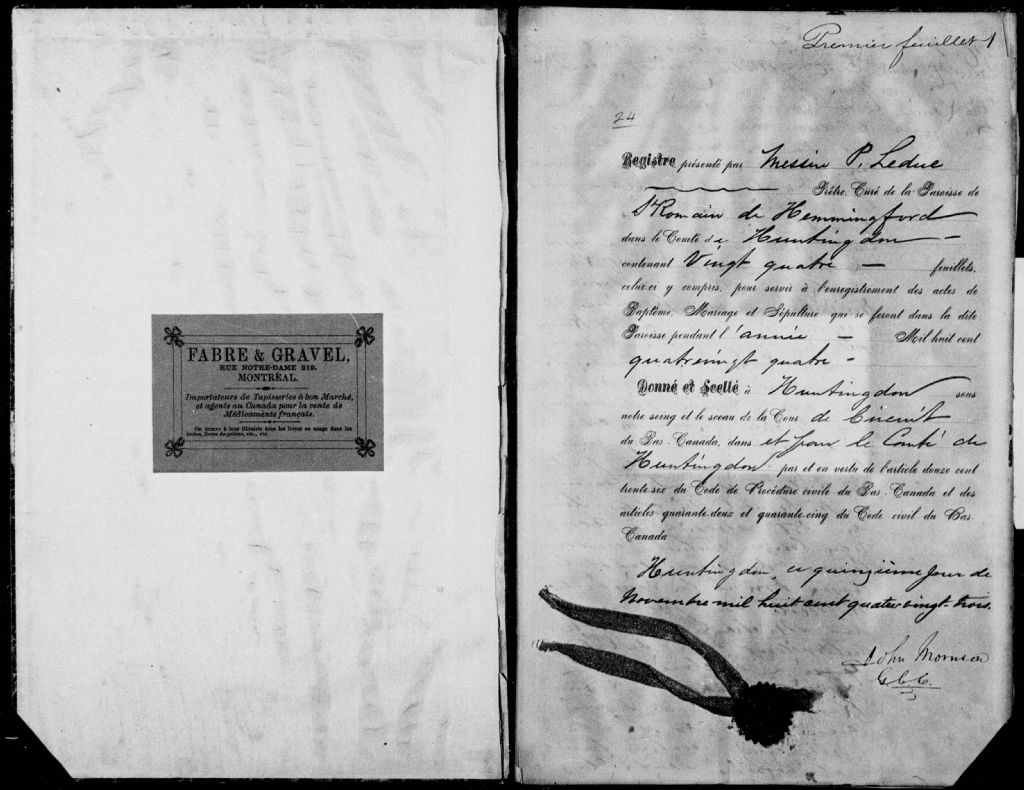 FABRE & GRAVEL,
RUE NOTRE-DAME 219,
MONTRÉAL.
Importateurs de Tapisseries à bon Marché,
et agents au Canada pour la vente de
Médicaments français.
On trouve à leur librairie tous les livres en usage dans les
écoles, livres de prières, etc., etc.
Premier feuillet 1
24
Registre présenté par Messire P. Leduc
Prêtre, Curé de la Paroisse de
St Romain de Hemmingford
dans le Comté de Huntingdon —
contenant Vingt quatre — feuillets,
celui-ci y compris, pour servir à l'enregistrement des actes de
Baptême, Mariage et Sépulture qui se feront dans la dite
Paroisse pendant l'année — Mil huit cent
quatrevingt quatre -
Donné et Scellé à Huntingdon sous
notre seing et le sceau de la Cour de Circuit
du Bas-Canada, dans et pour le Comté de
Huntingdon par et en vertu de l'article douze cent
trente-six du Code de Procédure civile du Bas-Canada et des
articles quarante-deux et quarante-cinq du Code civil du Bas-
Canada
Huntingdon, ce quinzième jour de
Novembre mil huit cent quatre vingt-trois.
John Morrison
C.C.C.